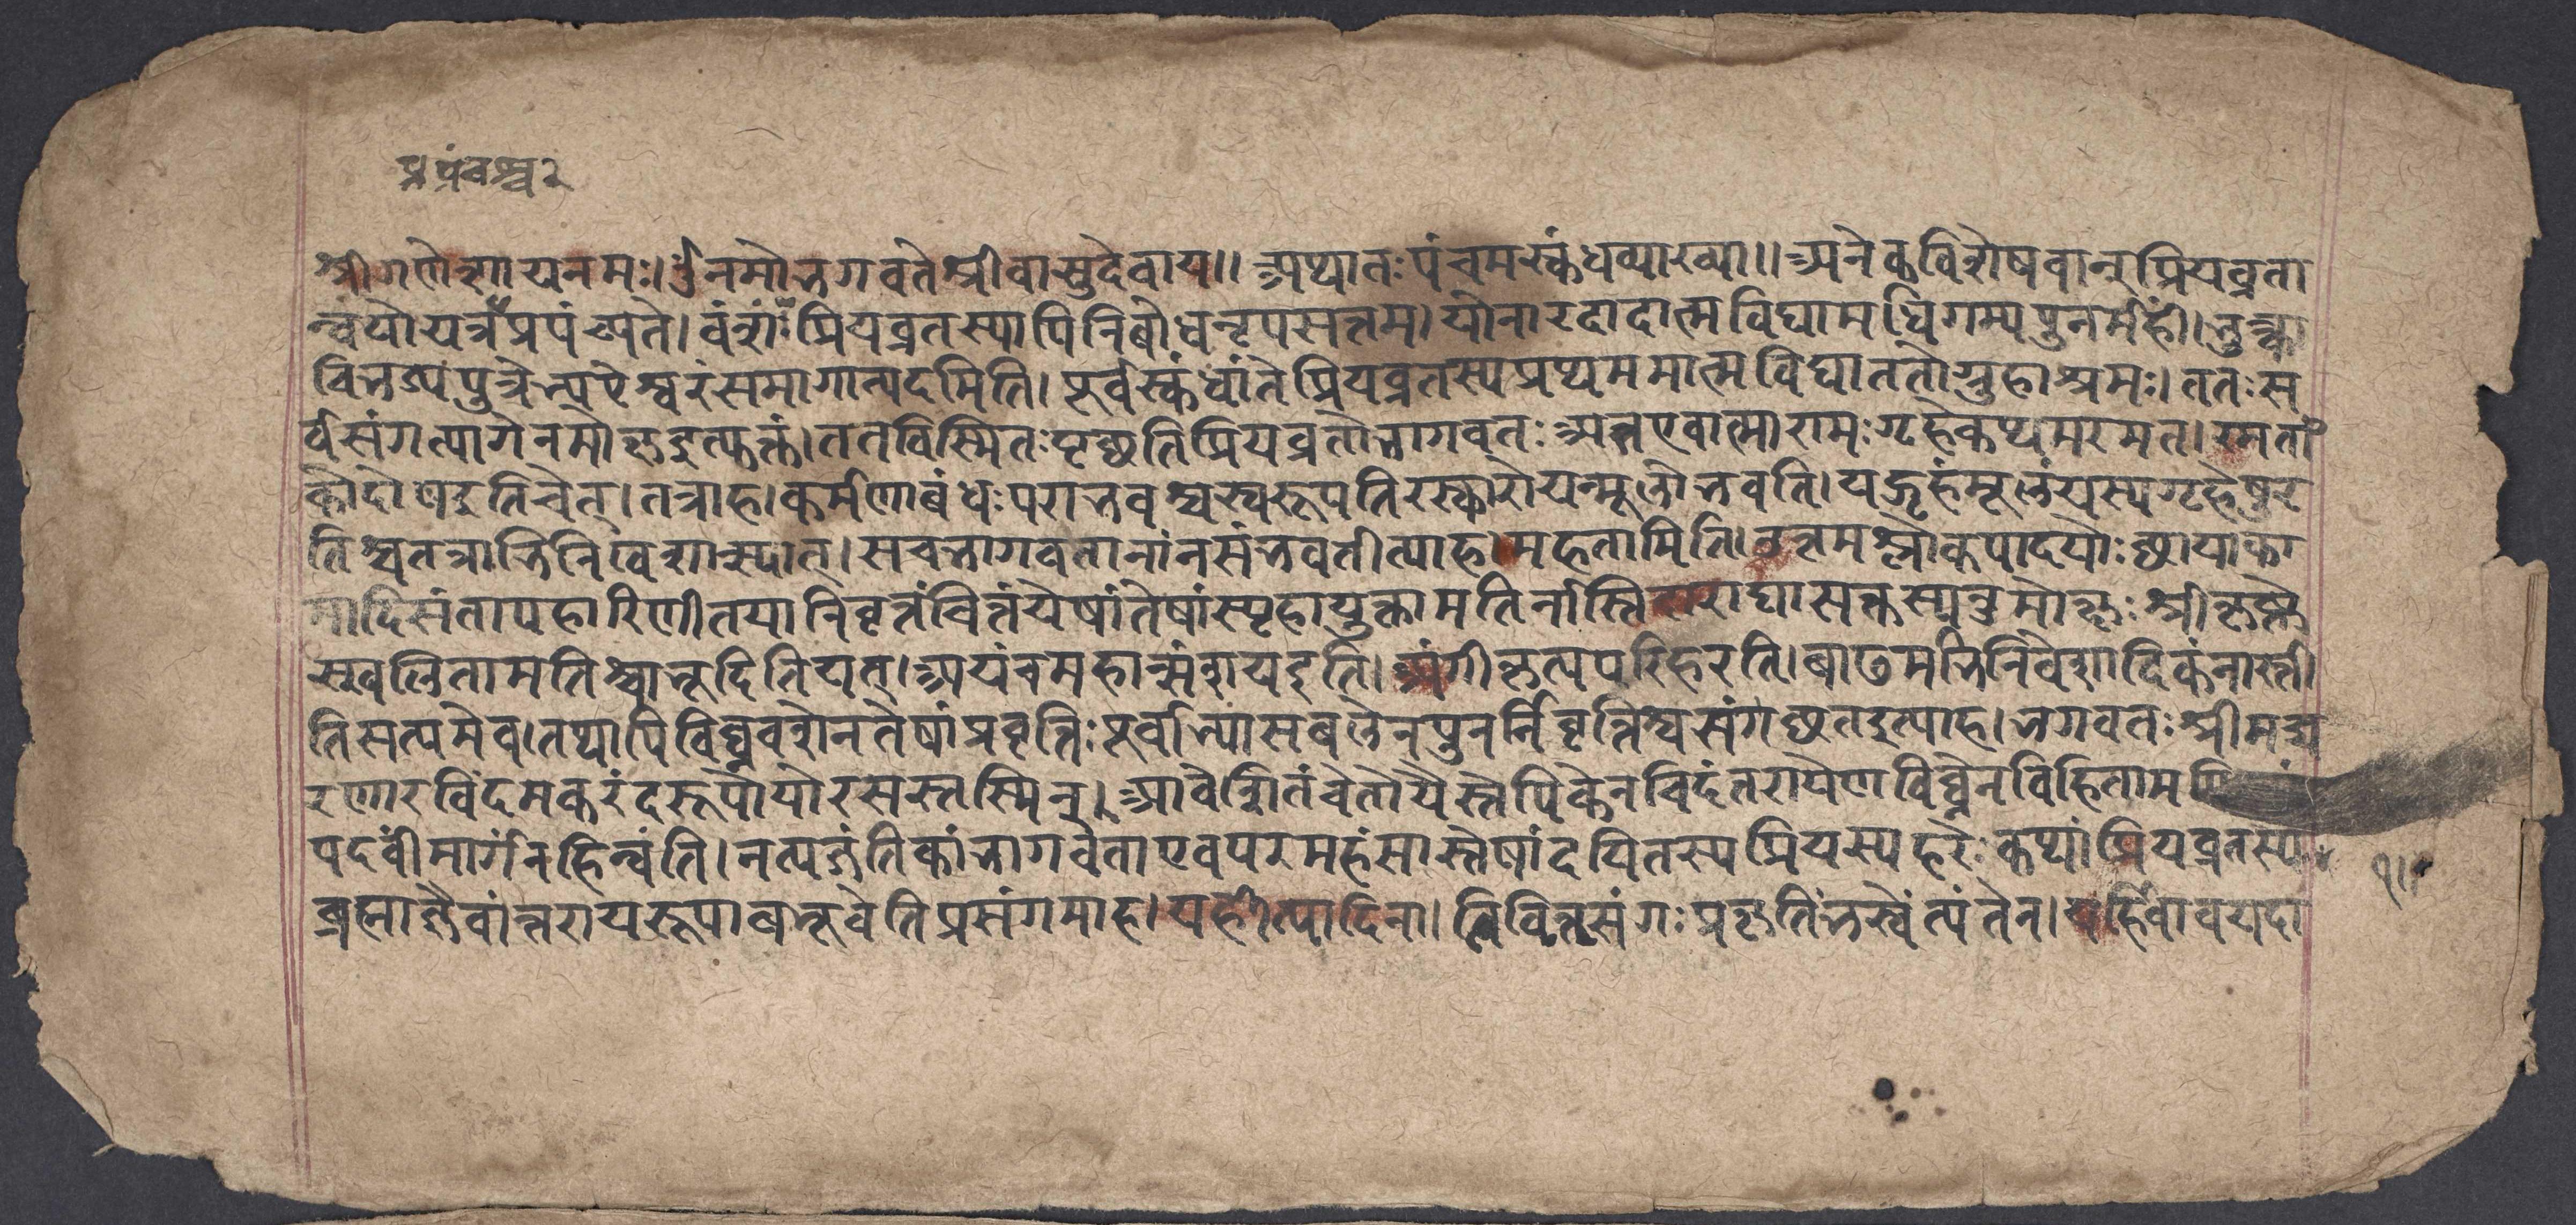 श्रीगणेशायनमः।ॐनमोभगवतेश्रीवासुदेवाय॥अथातःपंचमस्कंधव्याख्या॥अनेकविशेषवान्प्रियव्रता
न्वयोयत्रप्रपंच्यते।वंशःप्रियव्रतस्यापिनिबोधनृपसत्तम।योनारदादात्मविद्यामधिगम्यपुनर्महीं।भुक्त्वा
विभज्यपुत्रेभ्यऐश्वरंसमागात्पदमिति।पूर्वस्कंधांतेप्रियव्रतस्यप्रथममात्मविद्याततोगृहाश्रमः।ततःस
र्वसंगत्यागेनमोक्षइत्युक्तं।ततविस्मितःपृछतिप्रियव्रतोभागवतःअतएवात्मारामःगृहेकथमरमत।रमतां
कोदोषइतिचेत्।तत्राह।कर्मणाबंधःपराभवश्चस्वरूपतिरस्कारोयन्मूलोभवति।यद्गृहंमूलंयस्यगृहेषुर
तिश्चतत्राभिनिवेशःस्यात्।सचभागवतानांनसंभवतीत्याह।महतामिति।उत्तमश्लोकपादयोःछायाका
मादिसंतापहारिणीतयानिवृत्तंचित्तंयेषांतेषांस्पृहायुक्तामतिर्नास्तिदाराद्यासक्तस्यनुमोक्षःश्रीकृष्णे
स्खलितामतिश्चाभूदितियत्।अयंचमहान्संशयइति।अंगीकृत्यपरिहरति।बाढमभिनिवेशादिकंनास्ती
तिसत्यमेव।तथापिविघ्नवशेनतेषांप्रवृत्तिःपूर्वाभ्यासबलेनपुनर्निवृत्तिश्चसंगछतइत्याह।भगवतःश्रीमच्च
रणारविंदमकरंदरूपोयोरसस्तस्मिन्।आवेशितंचेतोयैस्तेपिकेनचिदंतरायेणविघ्नेनविहितामपि
पदवींमार्गंनहिन्वंति।नत्यजंतिकांभागवताएवपरमहंसास्तेषांदयितस्यप्रियस्यहरेःकथांप्रियव्रतस्य
ब्रह्माज्ञैवांतरायरूपाबभूवेतिप्रसंगमाह।यर्हीत्यादिना।विविक्तसंगःप्रकृतिंभजस्वेत्यंतेन।यर्हिवावयदा
१।